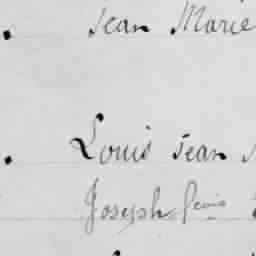 Jean Marie
Louis Jean
Joseph